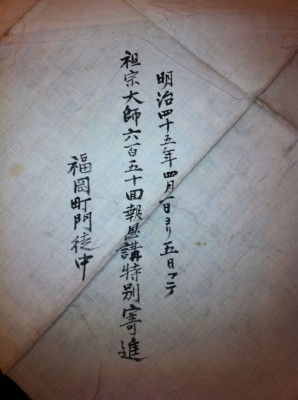 明治四十五年四月一日ヨリ五日マテ
祖宗大師六百五十回報恩講特別寄進
福岡町門徒中